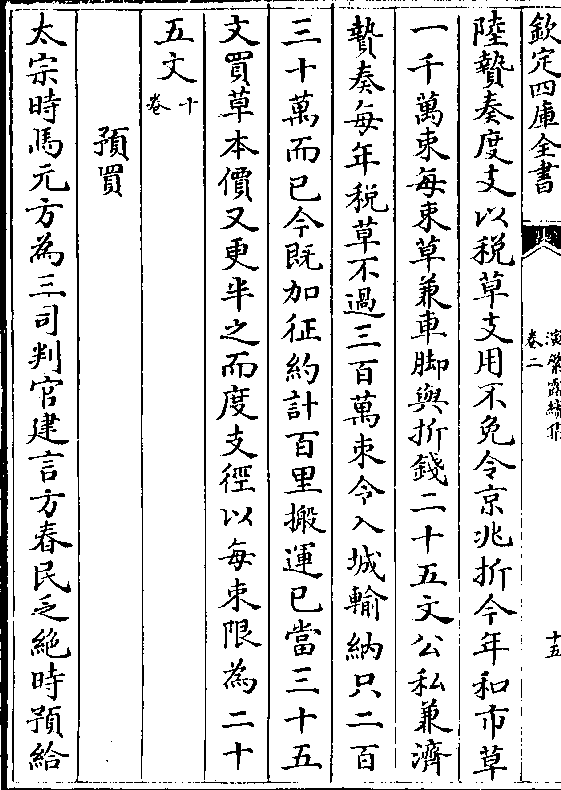 欽定四庫全書
演繁露續集
卷二
十五
陸贄奏度支以税草支用不免令京兆折今年和市草
一千萬束每束草兼車脚與折錢二十五文公私兼濟
贄奏每年税草不過三百萬束令入城輸納只二百
三十萬而已今既加征約計百里搬運已當三十五
文買草本價又更半之而度支徑以每束限為二十
五文十卷
預買
太宗時馬元方為三司判官建言方春民乏絶時預給